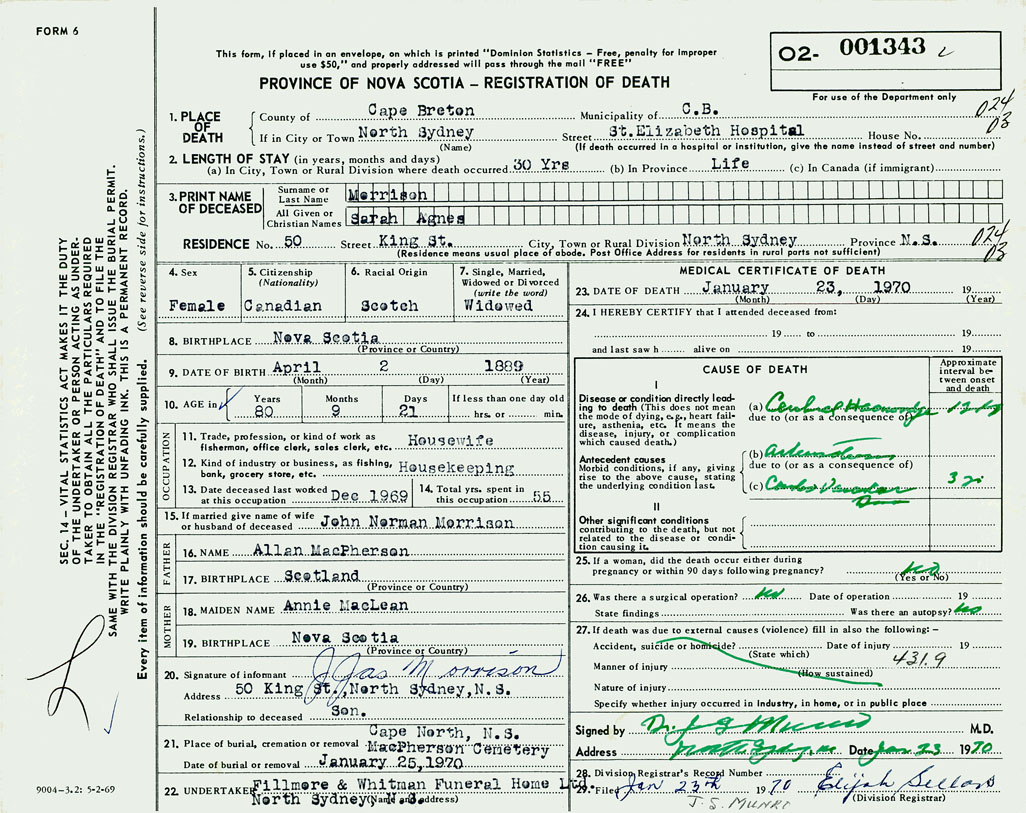 FORM 6
This form, if placed in an envelope, on which is printed "Dominion Statistics – Free, penalty for improper
use $50," and properly addressed will pass through the mail "FREE"
PROVINCE OF NOVA SCOTIA – REGISTRATION OF DEATH
02- 001343
For use of the Department only
1. PLACE OF DEATH
County of Cape Breton Municipality of C.B.
024
03
If in City or Town North Sydney Street St.Elizabeth Hospital House No.
(Name) (If death occurred in a hospital or institution, give the name instead of street and number)
2. LENGTH OF STAY (in years, months and days)
(a) In City, Town or Rural Division where death occurred 30 Yrs (b) In Province Life (c) In Canada (if immigrant)
3. PRINT NAME OF DECEASED
Surname or Last Name Morrison
All Given or Christian Names Sarah Agnes
RESIDENCE No. 50 Street King St. City, Town or Rural Division North Sydney Province N.S.
024
03
(Residence means usual place of abode. Post Office Address for residents in rural parts not sufficient)
4. Sex
Female
5. Citizenship
(Nationality)
Canadian
6. Racial Origin
Scotch
7. Single, Married,
Widowed or Divorced
(write the word)
Widowed
8. BIRTHPLACE Nova Scotia
(Province or Country)
9. DATE OF BIRTH April 2 1889
(Month) (Day) (Year)
10. AGE in Years Months Days If less than one day old
80 9 21 hrs. or min.
OCCUPATION
11. Trade, profession, or kind of work as
fisherman, office clerk, sales clerk, etc. Housewife
12. Kind of industry or business, as fishing,
bank, grocery store, etc. Housekeeping
13. Date deceased last worked
at this occupation Dec 1969
14. Total yrs. spent in
this occupation 55
15. If married give name of wife
or husband of deceased John Norman Morrison
FATHER
16. NAME Allan MacPherson
17. BIRTHPLACE Scotland
(Province or Country)
MOTHER
18. MAIDEN NAME Annie MacLean
19. BIRTHPLACE Nova Scotia
(Province or Country)
20. Signature of informant Jas Morrison
Address 50 King St., North Sydney,N.S.
Relationship to deceased Son.
21. Place of burial, cremation or removal Cape North, N.S.
MacPherson Cemetery
Date of burial or removal January 25,1970
22. UNDERTAKER Fillmore & Whitman Funeral Home Ltd
North Sydney N.S.
(Name and address)
MEDICAL CERTIFICATE OF DEATH
23. DATE OF DEATH January 23, 1970 19
(Month) (Day) (Year)
24. I HEREBY CERTIFY that I attended deceased from:
19 to 19
and last saw h alive on 19
CAUSE OF DEATH
Approximate
interval be-
tween onset
and death
I
Disease or condition directly lead-
ing to death (This does not mean
the mode of dying, e.g., heart fail-
ure, asthenia, etc. It means the
disease, injury, or complication
which caused death.)
(a) Cerebral Haemorrhage
due to (or as a consequence of)
Antecedent causes
Morbid conditions, if any, giving
rise to the above cause, stating
the underlying condition last.
(b)
due to (or as a consequence of)
(c) Cardio Vascular
3
II
Other significant conditions
contributing to the death, but not
related to the disease or condi-
tion causing it.
25. If a woman, did the death occur either during
pregnancy or within 90 days following pregnancy? No
(Yes or No)
26. Was there a surgical operation? No Date of operation 19
State findings Was there an autopsy? No
27. If death was due to external causes (violence) fill in also the following: –
Accident, suicide or homicide? Date of injury 19
(State which)
4319
Manner of injury
(How sustained)
Nature of injury
Specify whether injury occurred in Industry, in home, or in public place
Signed by Dr. J S Munro M.D.
Address North Sydney Date Jan 23 1970
28. Division Registrar's Record Number
29. Filed Jan 23th 1970 Elijah
(Division Registrar)
J. S. MUNRO
SEC. 14 – VITAL STATISTICS ACT MAKES IT THE DUTY
OF THE UNDERTAKER OR PERSON ACTING AS UNDER-
TAKER TO OBTAIN ALL THE PARTICULARS REQUIRED
IN THE "REGISTRATION OF DEATH" AND TO FILE THE
SAME WITH THE DIVISION REGISTRAR WHO SHALL ISSUE THE BURIAL PERMIT.
WRITE PLAINLY WITH UNFADING INK. THIS IS A PERMANENT RECORD.
Every item of information should be carefully supplied. (See reverse side for instructions.)
9004–3.2: 5-2-69